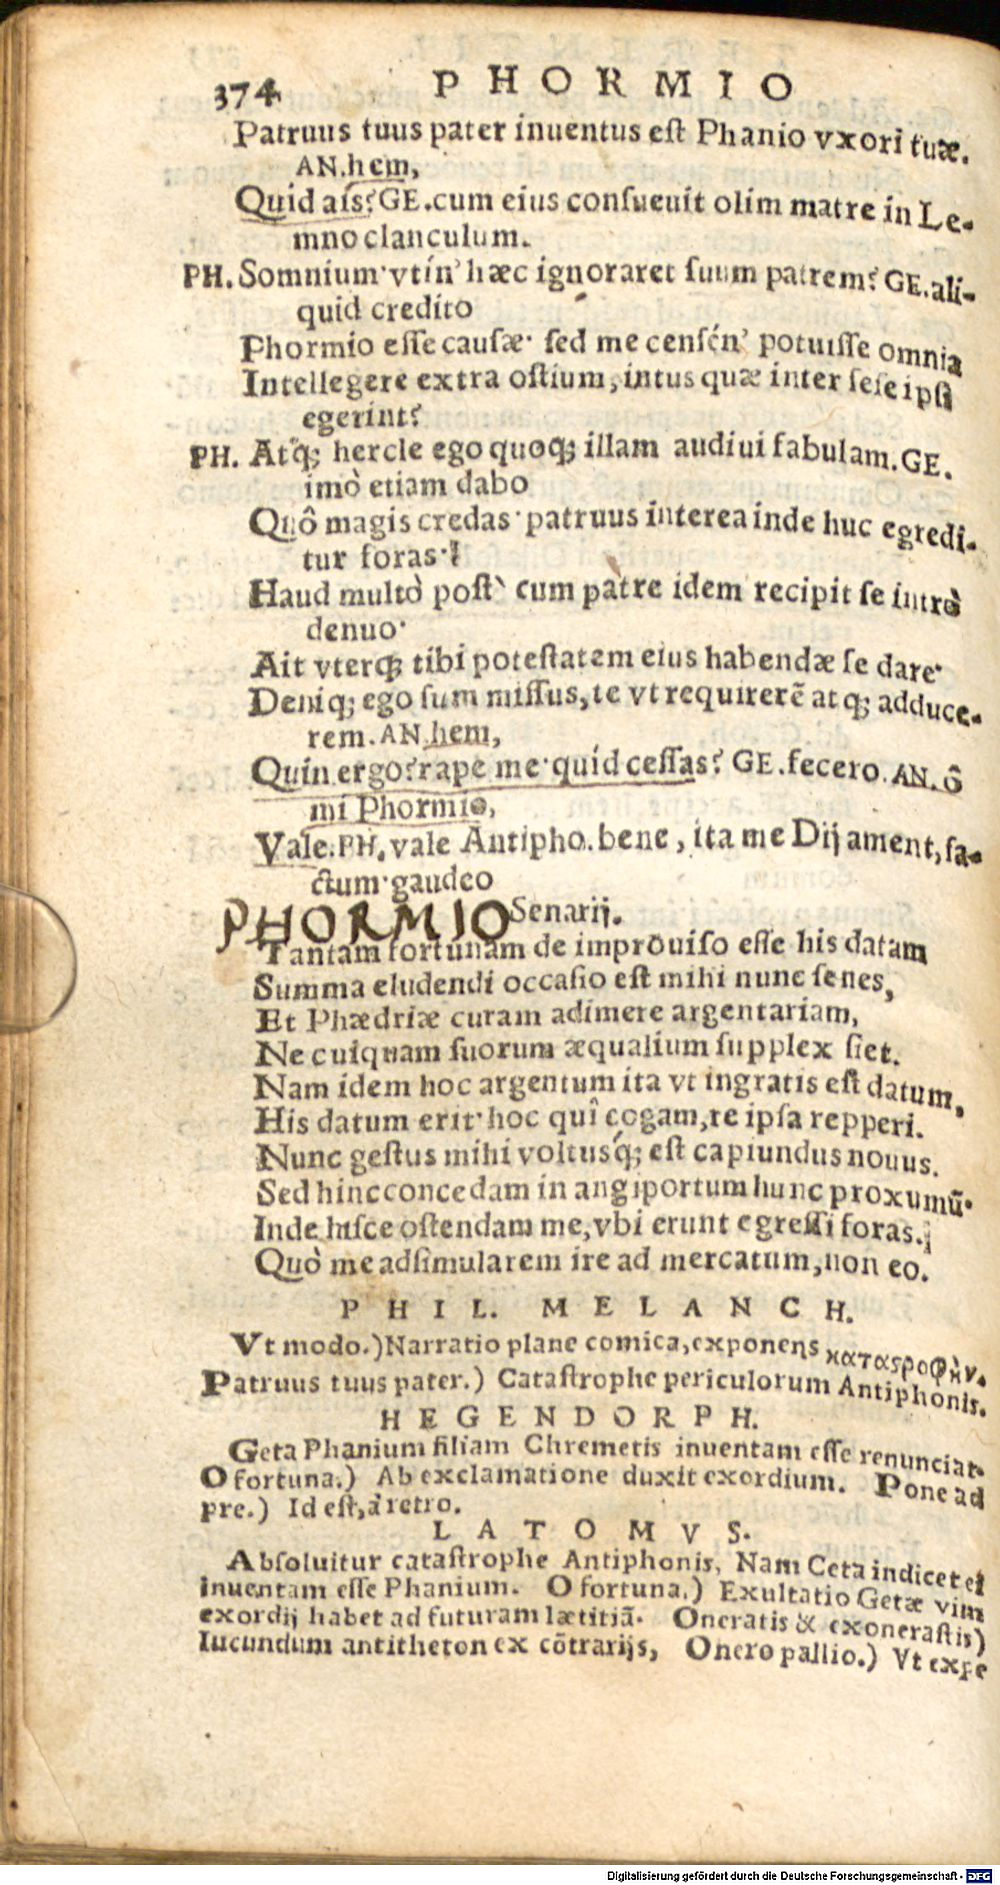 374 PHORMIO
Patruus tuus pater inuentus est Phanio vxori tuæ.
AN.hem,
Quid ais? GE.cum eius consueuit olim matre in Le-
mno clanculum.
PH. Somnium· vtin' hæc ignoraret suum patrem? GE.ali-
quid credito
Phormio esse causæ· sed me censén' potuisse omnia
Intellegere extra ostium, intus quæ inter sese ipsi
egerint?
PH. Atq; hercle ego quoq; illam audiui fabulam.GE.
imò etiam dabo
Quô magis credas· patruus interea inde huc egredi-
tur foras·
Haud multò pòst cum patre idem recipit se intrò
denuo·
Ait vterq; tibi potestatem eius habendæ se dare·
Deniq; ego sum missus, te vt requirerē atq; adduce-
rem. AN.hem,
Quin ergo? rape me· quid cessas? GE.fecero. AN. ô
mi Phormio,
Vale.PH.vale Antipho.bene, ita me Dij ament, fa-
ctum· gaudeo
PHORMIO Senarij.
Tantam fortunam de improuiso esse his datam
Summa eludendi occasio est mihi nunc senes,
Et Phædriæ curam adimere argentariam,
Ne cuiquam suorum æqualium supplex siet.
Nam idem hoc argentum ita vt ingratis est datum,
His datum erit· hoc quî cogam, re ipsa repperi.
Nunc gestus mihi voltusq́; est capiundus nouus.
Sed hinc concedam in angiportum hunc proxumū·
Inde hisce ostendam me, vbi erunt egressi foras.
Quò me adsimularem ire ad mercatum, non eo.
PHIL. MELANCH.
Vt modo.) Narratio plane comica, exponens καταϛροφὴν.
Patruus tuus pater.) Catastrophe periculorum Antiphonis.
HEGENDORPH.
Geta Phanium filiam Chremetis inuentam esse renunciat·
O fortuna.) Ab exclamatione duxit exordium. Pone ad
pre.) Id est, à retro.
LATOMVS.
Absoluitur catastrophe Antiphonis, Nam Ceta indicet ei
inuentam esse Phanium. O fortuna.) Exultatio Getæ vim
exordij habet ad futuram lætitiā· Oneratis & exonerastis)
Iucundum antitheton ex cōtrarijs, Onero pallio.) Vt expe
Digitalisierung gefördert durch die Deutsche Forschungsgemeinschaft - DFG